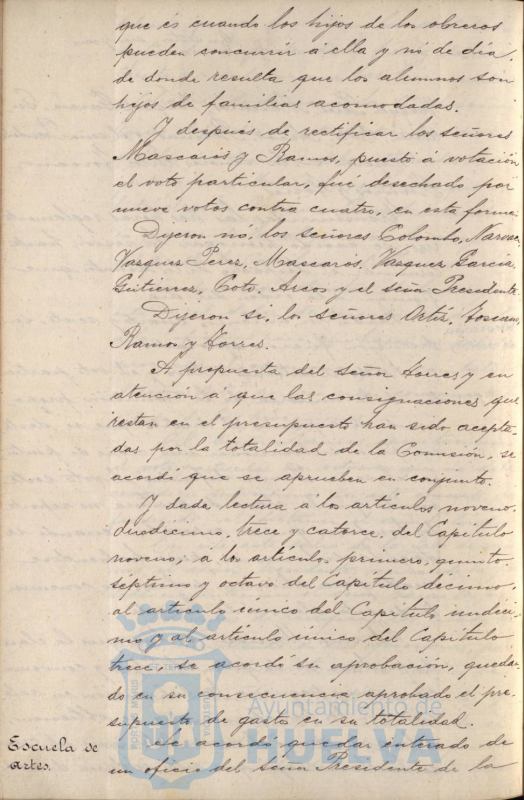 que és cuando los hijos de los obreros
pueden concurrir á ella y nó de día,
de donde resulta que los alumnos son
hijos de familias acomodadas.
Y después de rectificar los señores
Mascarós y Ramos, puesto á votación
el voto particular, fué desechado por
nueve votos contra cuatro, en esta forma:
Dijeron nó, los señores Colombo, Narvaez
Vasquez Perez, Mascarós, Vasquez García,
Gutierrez, Coto, Arcos y el señor Presidente.
Dijeron si, los señores Ortiz, Toscano,
Ramos y Torres.
A propuesta del señor Torres y en
atención á que las consignaciones que
restan en el presupuesto han sido acepta-
das por la totalidad de la Comisión, se
acordó que se aprueben en conjunto.
Y dada lectura á los artículos noveno,
duodécimo, trece y catorce, del Capítulo
noveno; á los artículos primero, quinto
séptimo y octavo del Capítulo décimo,
al artículo único del Capítulo undéci-
mo y al artículo único del Capítulo
trece, se acordó su aprobación, quedan-
do en su consecuencia aprobado el pre-
supuesto de gastos en su totalidad.
Escuela de
Artes.
Se acordó quedar enterado de
un oficio del señor Presidente de la
Ayuntamiento de
HUELVA